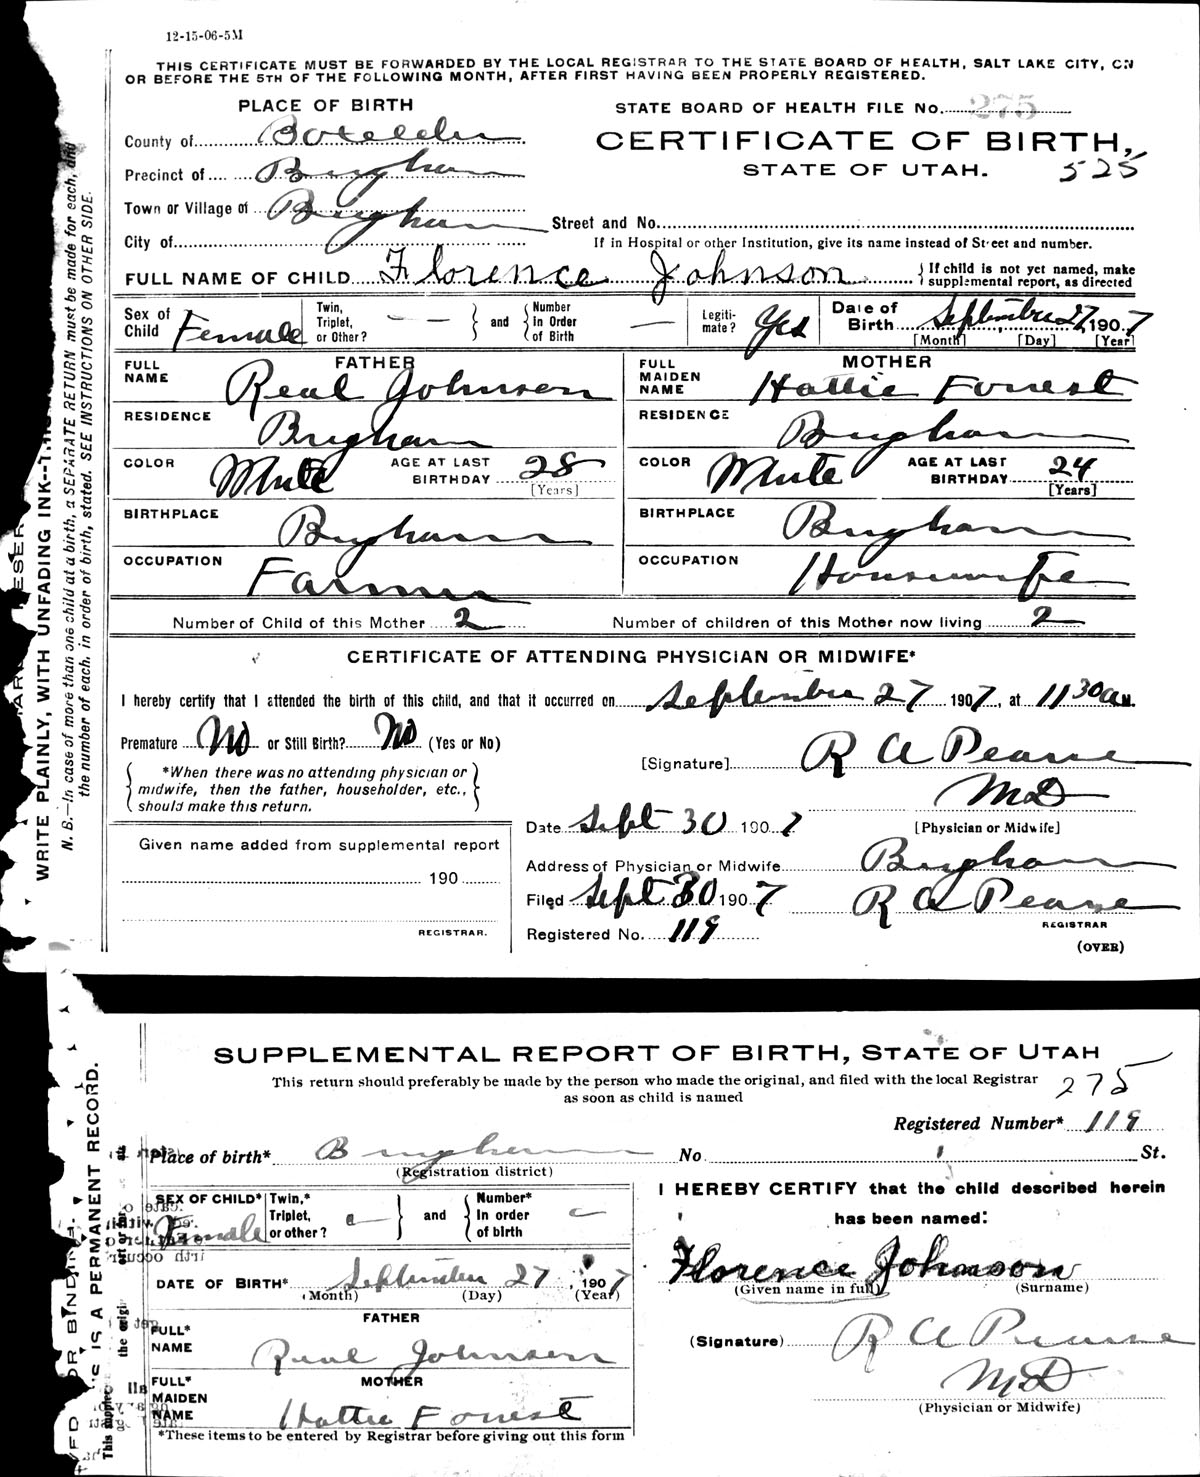 12-15-06-5M
THIS CERTIFICATE MUST BE FORWARDED BY THE LOCAL REGISTRAR TO THE STATE BOARD OF HEALTH, SALT LAKE CITY, ON
OR BEFORE THE 5TH OF THE FOLLOWING MONTH, AFTER FIRST HAVING BEEN PROPERLY REGISTERED.
PLACE OF BIRTH
STATE BOARD OF HEALTH FILE No. 275
County of Boxelder
CERTIFICATE OF BIRTH,
Precinct of Brigham
STATE OF UTAH. 525
Town or Village of Brigham
City of
Street and No.
If in Hospital or other Institution, give its name instead of Street and number.
FULL NAME OF CHILD Florence Johnson { If child is not yet named, make supplemental report, as directed
Sex of Child Female Twin, Triplet, or Other? — } and { Number in Order of Birth — Legiti-mate? Yes Date of Birth September 27, 1907
[Month] [Day] [Year]
FATHER MOTHER
FULL NAME Real Johnson FULL MAIDEN NAME Hattie Forrest
RESIDENCE Brigham RESIDENCE Brigham
COLOR White AGE AT LAST BIRTHDAY 28 [Years] COLOR White AGE AT LAST BIRTHDAY 24 [Years]
BIRTHPLACE Brigham BIRTHPLACE Brigham
OCCUPATION Farmer OCCUPATION Housewife
Number of Child of this Mother 2 Number of children of this Mother now living 2
CERTIFICATE OF ATTENDING PHYSICIAN OR MIDWIFE*
I hereby certify that I attended the birth of this child, and that it occurred on September 27 1907, at 11 30 a M.
Premature No or Still Birth? No (Yes or No)
[Signature] R A Pearse
MD
[Physician or Midwife]
{ *When there was no attending physician or
midwife, then the father, householder, etc.,
should make this return. }
Date Sept 30 1907
Given name added from supplemental report
190
REGISTRAR.
Address of Physician or Midwife Brigham
Filed Sept 30 1907 R A Pearse
REGISTRAR
Registered No. 119
(OVER)
WRITE PLAINLY, WITH UNFADING INK--THIS
N. B.—In case of more than one child at a birth, a SEPARATE RETURN must be made for each, and
the number of each, in order of birth, stated. SEE INSTRUCTIONS ON OTHER SIDE.
SUPPLEMENTAL REPORT OF BIRTH, STATE OF UTAH
This return should preferably be made by the person who made the original, and filed with the local Registrar
as soon as child is named
275
Registered Number* 119
Place of birth* Brigham No. St.
(Registration district)
SEX OF CHILD* Female Twin,* Triplet, or other? } and { Number* In order of birth
DATE OF BIRTH* September 27, 1907
(Month) (Day) (Year)
FATHER
FULL* NAME Real Johnson
MOTHER
FULL* MAIDEN NAME Hattie Forrest
*These items to be entered by Registrar before giving out this form
I HEREBY CERTIFY that the child described herein
has been named:
Florence Johnson
(Given name in full) (Surname)
(Signature) R A Pearse
MD
(Physician or Midwife)
IS A PERMANENT RECORD.